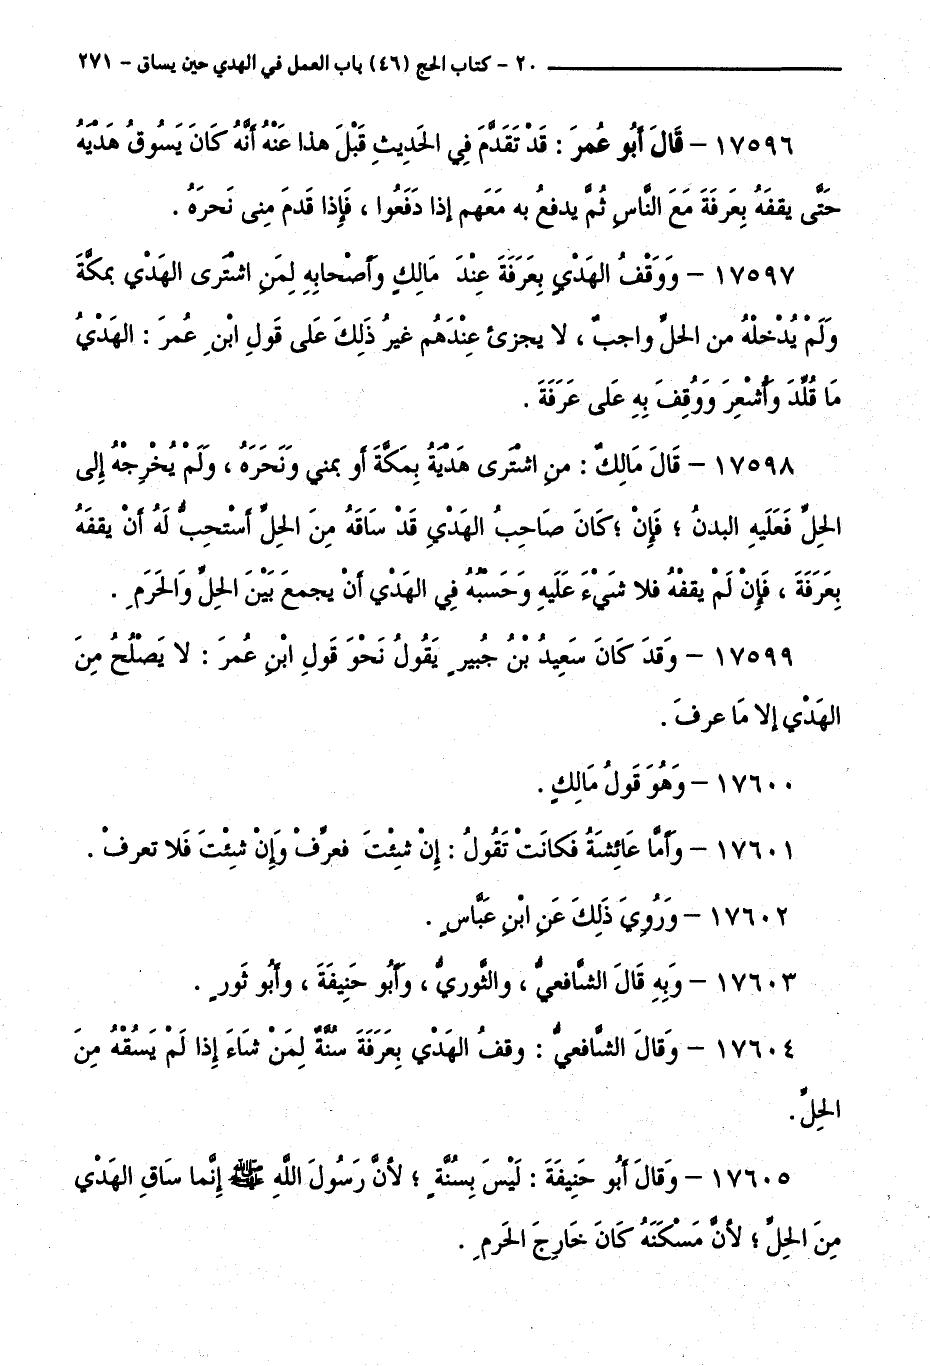 ٢٠ - كتاب الحج (٤٦) باب العمل في الهدي حين يساق - ٢٧١
١٧٥٩٦ - قَالَ أَبُو عُمرَ : قَدْ تَقَدَّمَ فِي الحَديثِ قَبْلَ هذا عَنْهُ أَنَّهُ كَانَ يَسُوقُ هَدْيَهُ
حَتَّى يقفَهُ بِعَرفَةَ مَعَ النَّاسِ ثُمَّ يدفعُ به مَعَهم إذا دَفَعُوا ، فَإِذا قَدمَ مِنى نَحرَهُ .
١٧٥٩٧ - وَوَقْفُ الهَدْيِ بِعَرَفَةَ عِنْدَ مَالِكٍ وأَصْحابِهِ لِمَنِ اشْتَرى الهَدْيَ بمكَّةَ
وَلَمْ يُدْخلْهُ من الحلِّ واجبٌ ، لا يجزئ عِنْدَهُم غيرُ ذَلِكَ عَلى قَولِ ابْنِ عُمرَ : الهَدْيُ
مَا قُلِّدَ وَأُشْعِرَ وَوُقِفَ بِهِ عَلى عَرَفَةَ .
١٧٥٩٨ - قَالَ مَالِكٌ : منِ اشْتَرى هَدْيَهُ بِمَكَّةَ أو بمني وَنَحَرَهُ ، وَلَمْ يُخْرِجْهُ إِلى
الحلِّ فَعَلَيهِ البدنُ ؛ فَإِنْ ؛ كَانَ صَاحِبُ الهَدْيِ قَدْ سَاقَهُ مِنَ الحَلِّ أَسْتحِبُّ لَهُ أَنْ يقفَهُ
بِعَرَفَةَ ، فَإِنْ لَمْ يقفْهُ فلا شَيْءَ عَلَيهِ وَحَسْبُهُ فِي الهَدْي أَنْ يجمعَ بَيْنَ الحلِّ وَالحَرَمِ .
١٧٥٩٩ - وَقدَ كَانَ سَعِيدُ بْنُ جُبيرٍ يَقُولُ نَحْوَ قَولِ ابْنِ عُمرَ : لا يَصْلُحُ مِنَ
الهَدْي إلا مَا عرفَ .
١٧٦٠٠ - وَهُوَ قَولُ مَالِكٍ .
١٧٦٠١ - وَأَمَّا عَائِشَةُ فَكانَتْ تَقُولُ : إِنْ شئْتَ فعرِّفْ وَإِنْ شئْتَ فَلا تعرفْ .
١٧٦٠٢ - وَرُوِيَ ذَلِكَ عَنِ ابْنِ عَبَّاسٍ .
١٧٦٠٣ - وَبِهِ قَالَ الشَّافعيُّ ، والثَّوريُّ ، وَأَبُو حَنِيفَةَ ، وأَبُو ثَورٍ .
١٧٦٠٤ - وَقالَ الشَّافعيُّ : وقفُ الهَدْي بِعَرَفَةَ سُنَّةٌ لِمَنْ شاءَ إِذا لَمْ يَسُقْهُ مِنَ
الحِلِّ .
١٧٦٠٥ - وَقالَ أَبُو حَنِيفَةَ : لَيْسَ بِسُنَّةٍ ؛ لأنَّ رَسُولَ اللَّهِ ﷺ إِنَّما سَاقِ الهَدْي
مِنَ الحِلِّ ؛ لأنَّ مَسْكَنَهُ كَانَ خَارِجَ الحَرمِ .